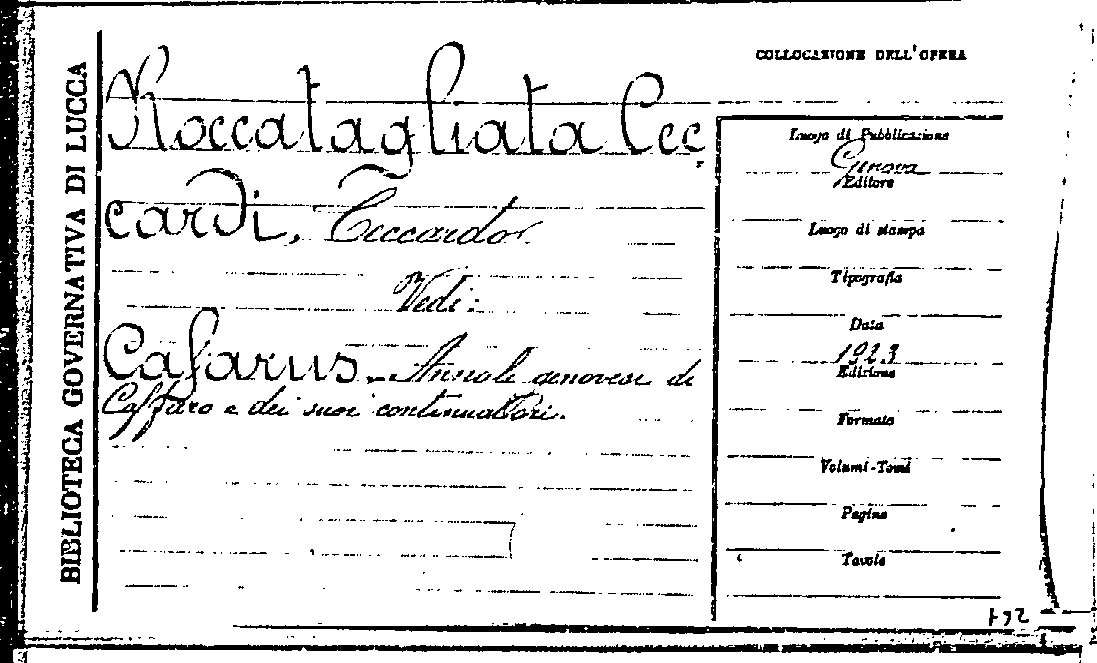 BIBLIOTECA GOVERNATIVA DI LUCCA
Roccatagliata Cec
cardi, Ceccardo
Vedi:
Cafarus. Annali genovesi di
Caffaro e dei suoi continuatori.
COLLOCAZIONE DELL'OPERA
Luogo di Pubblicazione
Genova
Editore
Luogo di stampa
Tipografia
Data
1923
Edizione
Formato
Volumi-Tomi
Pagine
Tavole